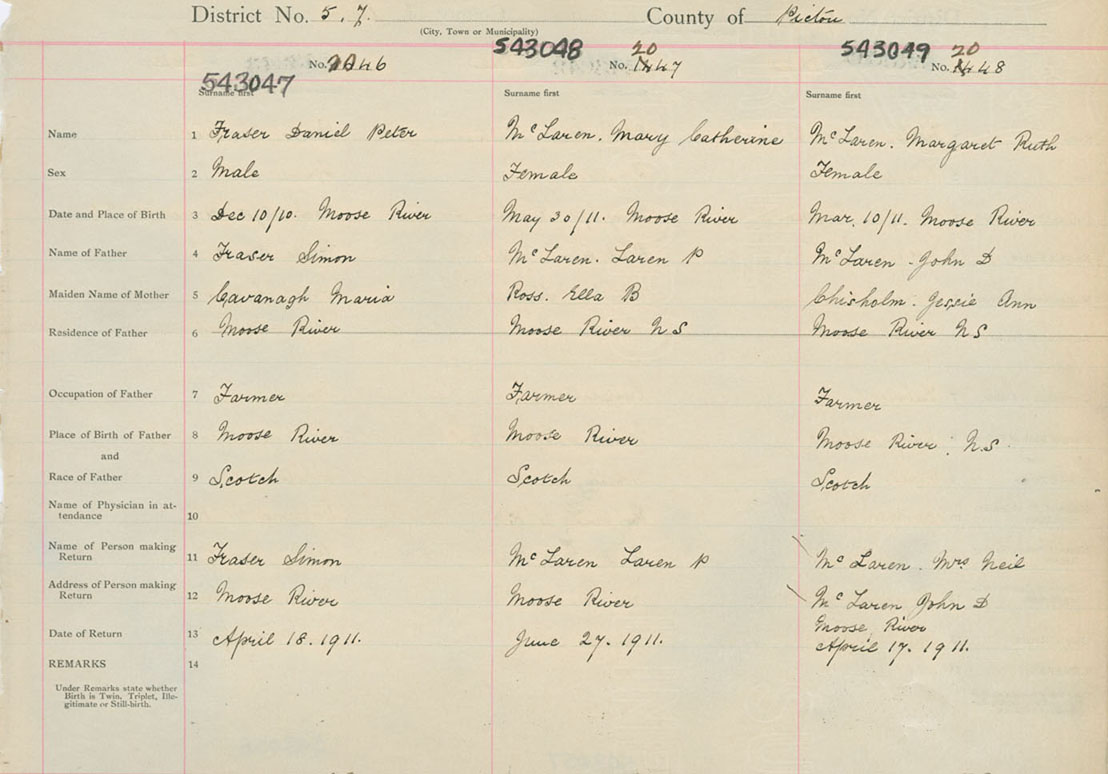 District No. 5.7. County of Pictou
(City, Town or Municipality)
543047 543048 543049
No. 2046 No. 2047 No. 2048
Surname first Surname first Surname first
Name 1 Fraser Daniel Peter McLaren. Mary Catherine McLaren. Margaret Ruth
Sex 2 Male Female Female
Date and Place of Birth 3 Dec 10/10. Moose River May 30/11. Moose River Mar. 10/11. Moose River
Name of Father 4 Fraser Simon McLaren. Laren P McLaren - John D
Maiden Name of Mother 5 Cavanagh Maria Ross. Ella B Chisholm. Jessie Ann
Residence of Father 6 Moose River Moose River N S Moose River N S
Occupation of Father 7 Farmer Farmer Farmer
Place of Birth of Father 8 Moose River Moose River Moose River. N.S.
and
Race of Father 9 Scotch Scotch Scotch
Name of Physician in at-
tendance 10
Name of Person making
Return 11 Fraser Simon McLaren Laren P McLaren. Mrs Neil
Address of Person making
Return 12 Moose River Moose River McLaren John D
Moose River
Date of Return 13 April 18. 1911. June 27. 1911. April 17. 1911.
REMARKS 14
Under Remarks state whether
Birth is Twin, Triplet, Ille-
gitimate or Still-birth.